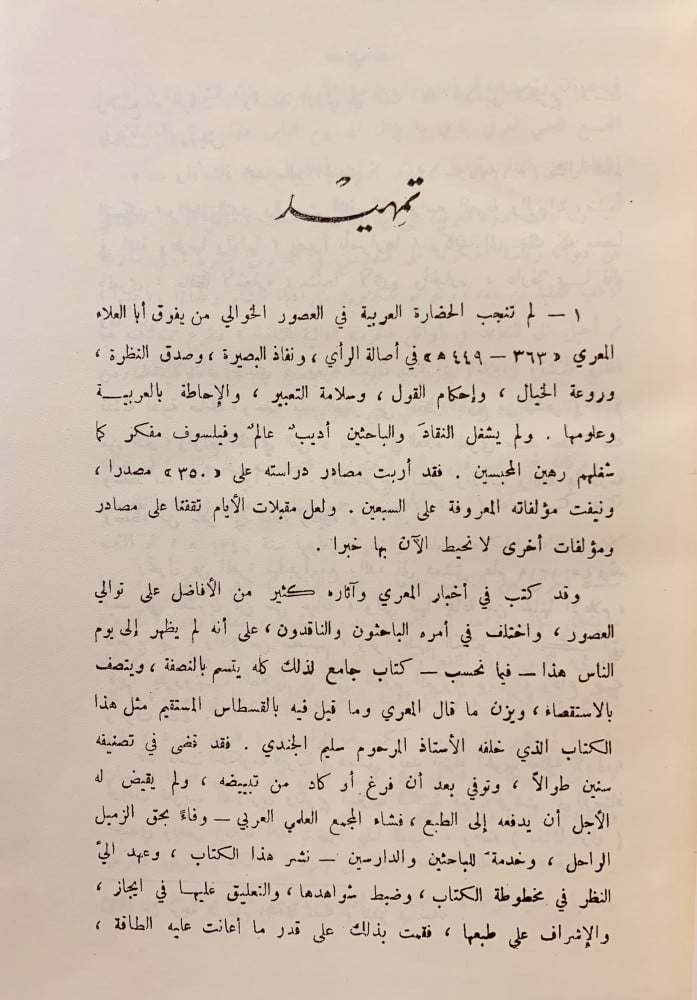 تمهيد
١ — لم تنجب الحضارة العربية في العصور الخوالي من يفوق أبا العلاء
المعري «٣٦٣ — ٤٤٩ هـ» في أصالة الرأي ، ونفاذ البصيرة ، وصدق النظرة ،
وروعة الخيال ، وإحكام القول ، وسلامة التعبير ، والإحاطة بالعربيــة
وعلومها . ولم يشغل النقادَ والباحثين أديبٌ عالمٌ وفيلسوف مفكر كما
شغلهم رهين المحبسين . فقد أربت مصادر دراسته على «٣٥٠» مصدرا ،
ونيفت مؤلفاته المعروفة على السبعين . ولعل مقبلات الأيام تقفنا على مصادر
ومؤلفات أخرى لا نحيط الآن بها خبرا .
وقد كتب في أخبار المعري وآثاره كثير من الأفاضل على توالي
العصور ، واختلف في أمره الباحثون والناقدون ، على أنه لم يظهر إلى يوم
الناس هذا — فيما نحسب — كتاب جامع لذلك كله يتسم بالنصفة ، ويتصف
بالاستقصاء ، ويزن ما قال المعري وما قيل فيه بالقسطاس المستقيم مثل هذا
الكتاب الذي خلفه الأستاذ المرحوم سليم الجندي . فقد قضى في تصنيفه
سنين طوالاً ، وتوفي بعد أن فرغ أو كاد من تبييضه ، ولم يقيض له
الأجل أن يدفعه إلى الطبع ، فشاء المجمع العلمي العربي — وفاءً بحق الزميل
الراحل ، وخدمة للباحثين والدارسين — نشر هذا الكتاب ، وعهد اليَّ
النظر في مخطوطة الكتاب ، وضبط شواهدها ، والتعليق عليهـا في ايجاز ،
والإشراف على طبعها ، فقمت بذلك على قدر ما أعانت عليه الطاقة ،